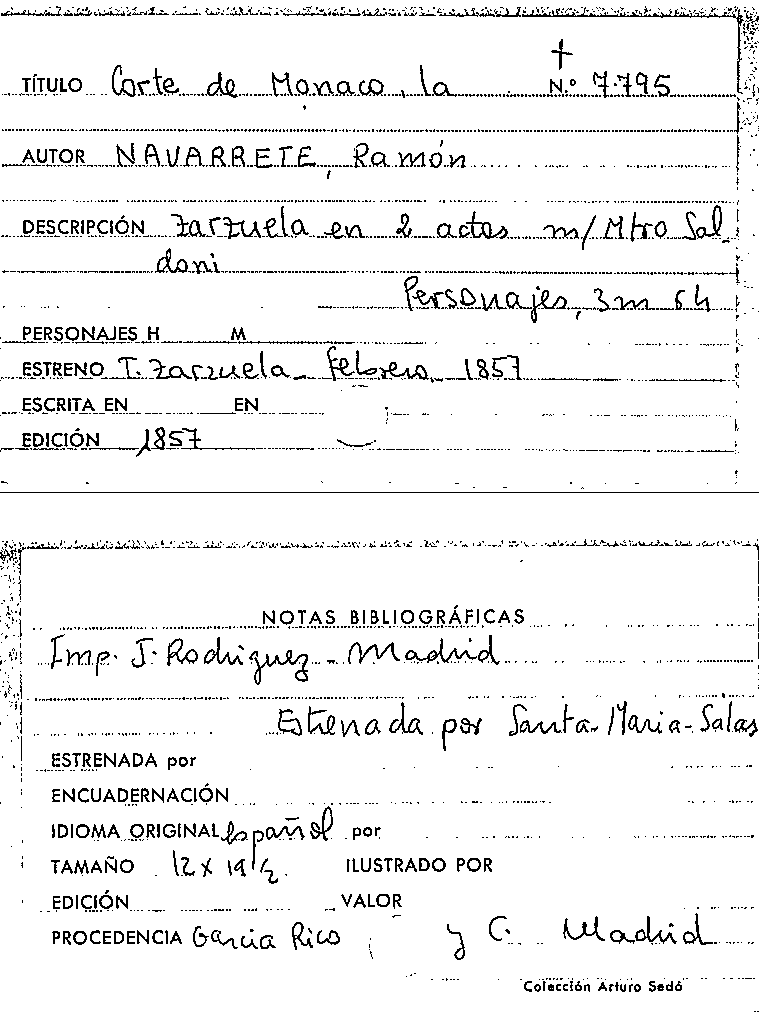 †
TÍTULO Corte de Monaco, la N.º 7.795
AUTOR NAVARRETE, Ramón
DESCRIPCIÓN Zarzuela en 2 actos m/ Mtro Sal-
doni
Personajes, 3m 6h
PERSONAJES H M
ESTRENO T. Zarzuela - Febrero, 1857
ESCRITA EN EN
EDICIÓN 1857
NOTAS BIBLIOGRÁFICAS
Imp. J. Rodriguez - Madrid
Estrenada por Santa-Maria-Salas
ESTRENADA por
ENCUADERNACIÓN
IDIOMA ORIGINAL Español por
TAMAÑO 12 x 19 1/2 ILUSTRADO POR
EDICIÓN VALOR
PROCEDENCIA Garcia Rico y C. Madrid
Colección Arturo Sedó